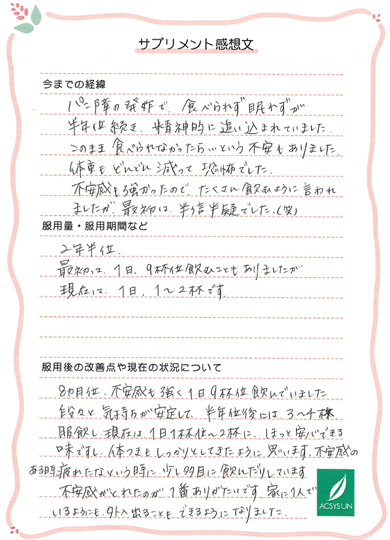 サプリメント感想文
今までの経緯
パニ障の発作で、食べられず眠れずが
半年位続き、精神的に追い込まれていました。
このまま食べられなかったら…という不安もありました。
体重もどんどん減って恐怖でした。
不安感も強かったので、たくさん飲むように言われ
ましたが、最初は、半信半疑でした。(笑)
服用量・服用期間など
2年半位、
最初は、1日、9杯位飲むこともありましたが
現在は、1日、1〜2杯です。
服用後の改善点や現在の状況について
8カ月位、不安感も強く1日9杯位飲んでいました
段々と気持ちが安定して、半年位後には、3〜4杯
服飲し、現在は、1日1杯位〜2杯に、ほっと安心できる
味ですし、体さまもしっかりとしてきたように思います。不安感の
ある時、疲れたなという時に少し多目に飲んだりしています
不安感がとれたのが1番ありがたいです。家に1人で
いるようにも、外へ出ることもできるようになりました。
ACSYSUN